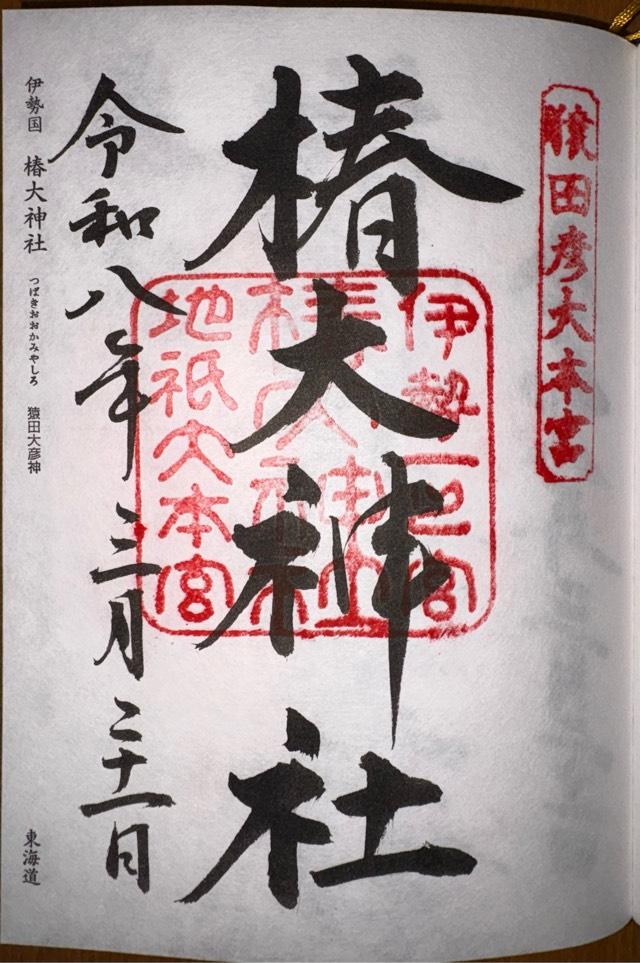 猿田彦大本宮
椿大神社
伊勢一之宮
椿大神社
地祇大本宮
令和八年三月二十一日
伊勢国 椿大神社 つばきおおかみやしろ 猿田大彦神
東海道